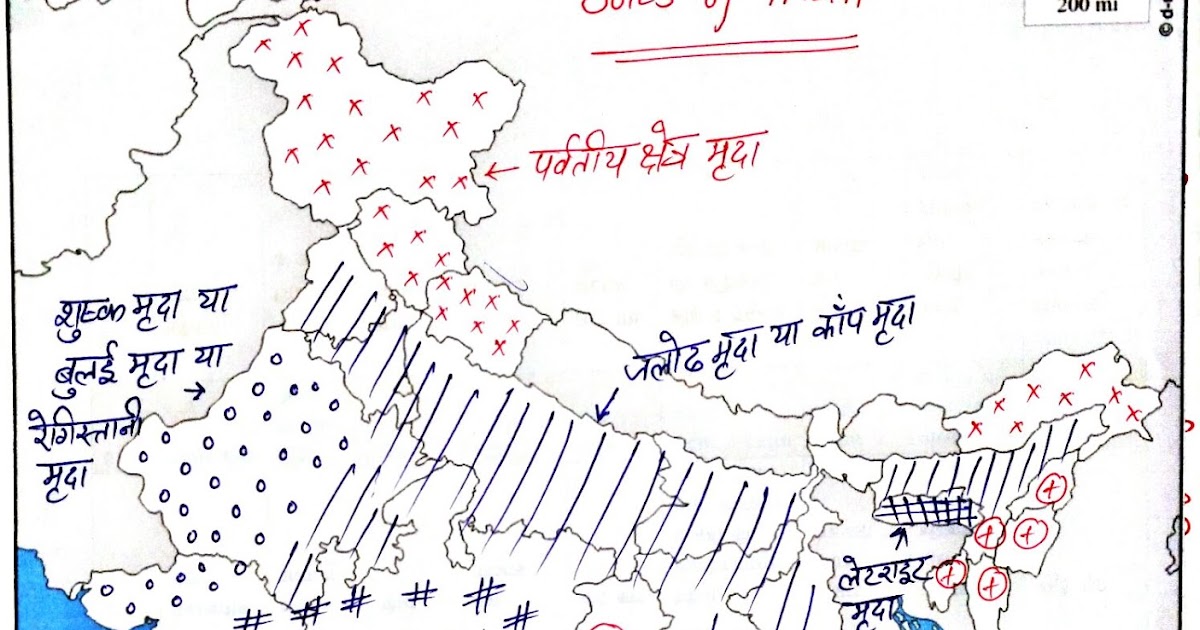 200 mi
पर्वतीय क्षेत्र मृदा
शुष्क मृदा या
बुलई मृदा या
रेगिस्तानी
मृदा
जलोढ मृदा या काँप मृदा
लेटराइट
मृदा